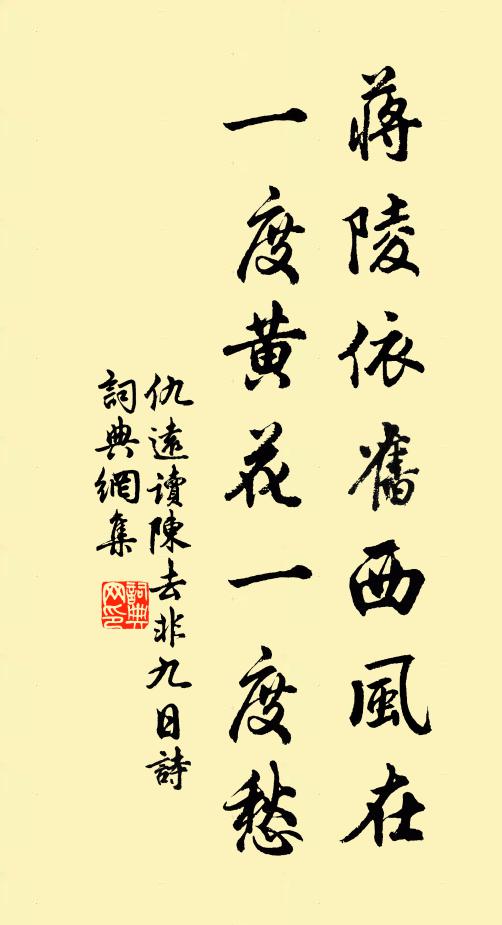 蔣陵依舊西風在
一度黃花一度愁
仇遠讀陳去非九日詩
詞典網集
詞典网印